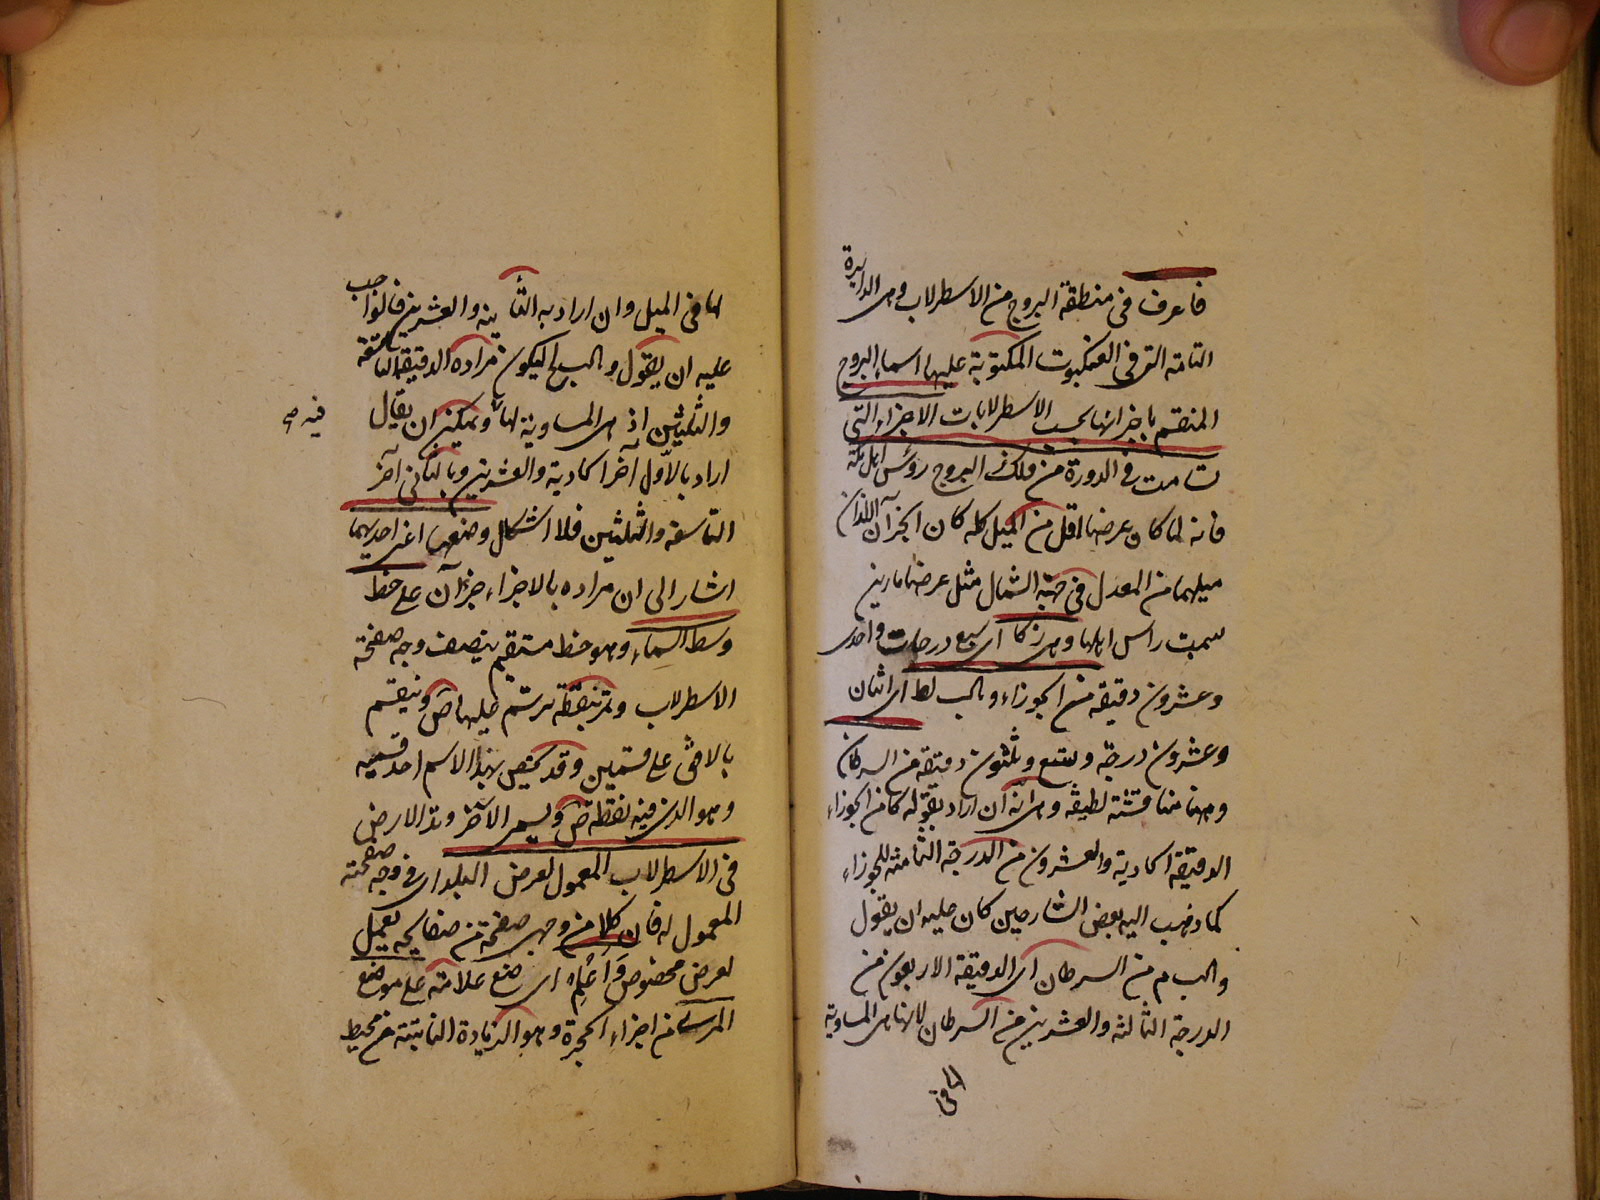 فاعرف فى منطقة البروج من الاسطرلاب وهى الدايرة
التامة التى فى العنكبوت المكتوبة عليها اسماء البروج
المنقسم باجزائها بحسب الاسطرلابات الاجزاء التى
تسامت فى الدورة من فلك البروج رؤس اهل مكة
فانه لما كان عرضها اقل من الميل كله كان الجزآن اللذان
ميلهما من المعدل فى جهة الشمال مثل عرضها مارين
بسمت راس اهلها وهى زكا اى سبع درجات واحدى
وعشرون دقيقة من الجوزاء و كب لط اى اثنان
وعشرون درجة وتسع وثلثون دقيقة من السرطان
وههنا مناقشة لطيفة وهى انه ان اراد بقوله كا من الجوزاء
الدقيقة الحادية والعشرون من الدرجة الثامنة للجوزاء
كما ذهب اليه بعض الشارحين كان عليه ان يقول
و كب م من السرطان اى الدقيقة الاربعون من
الدرجة الثالثة والعشرين من السرطان لانها هى المساوية
لها فى
لها فى الميل وان اراد به الثانية والعشرين فالواجب
عليه ان يقول و كب لح ليكون مراده الدقيقة التاسعة
والثلثين اذ هى المساوية لها ويمكن ان يقال
فيه صح
اراد بالاول آخر الحادية والعشرين وبالثانى آخر
التاسعة والثلثين فلا اشكال وضعهما اعنى احديهما
اشار الى ان مراده بالاجزاء جزآن على خط
وسط السماء وهو خط مستقيم ينصف وجه صفحة
الاسطرلاب ويمر بنقطة يرتسم عليها ص وينقسم
بالافق على قسمين وقد يختص بهذا الاسم احد قسميه
وهو الذى فيه نقطة ص ويسمى الآخر وتد الارض
فى الاسطرلاب المعمول لعرض البلد اى فى وجه صفحته
المعمول له فان كلا من وجهى صفحة من صفايحه يعمل
لعرض مخصوص وَاعْلِم اى ضع علامة على موضع
المرى من اجزاء الحجرة وهو الزيادة الناتئة من محيط